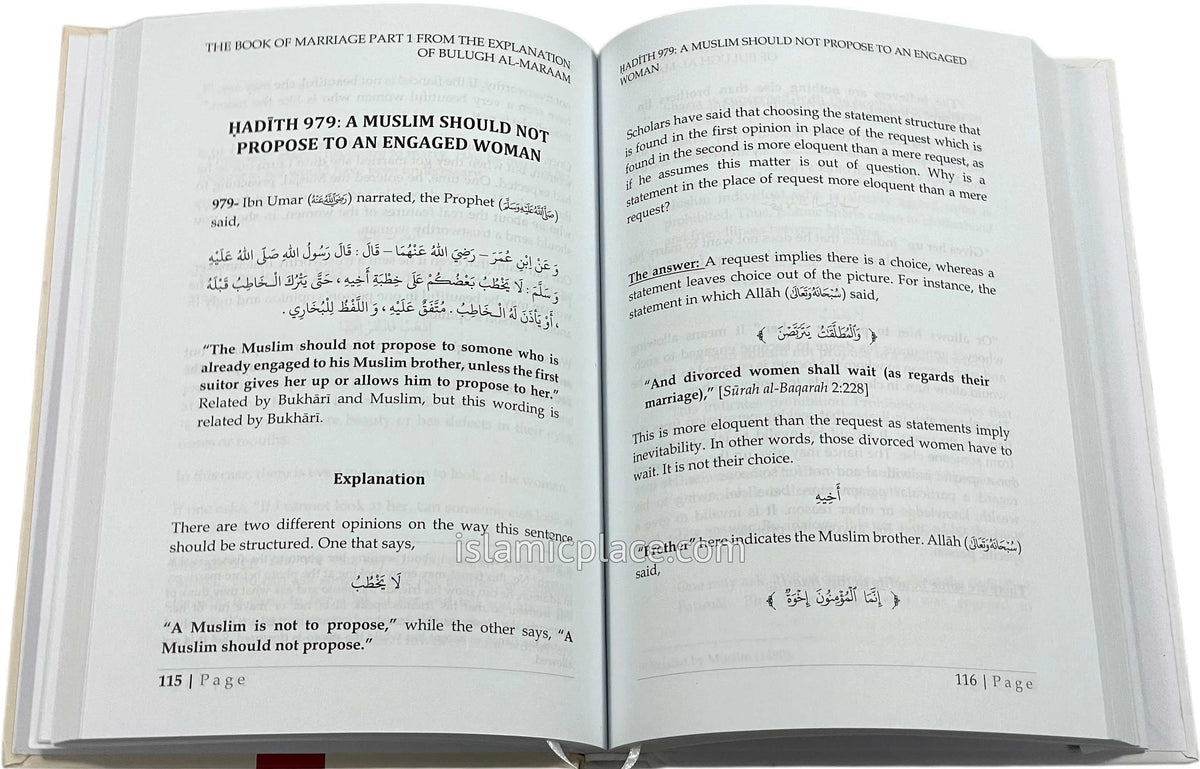 THE BOOK OF MARRIAGE PART 1 FROM THE EXPLANATION
OF BULUGH AL-MARAAM
ḤADĪTH 979: A MUSLIM SHOULD NOT
PROPOSE TO AN ENGAGED WOMAN
979- Ibn Umar (رَضِيَ اللَّهُ عَنْهُ) narrated, the Prophet (صَلَّى اللَّهُ عَلَيْهِ وَسَلَّمَ)
said,
وَ عَنْ اِبْنِ عُمَرَ – رَضِيَ اللهُ عَنْهُمَا – قَالَ : قَالَ رَسُولُ اللهِ صَلَّى اللهُ عَلَيْهِ
وَ سَلَّمَ : لَا يَخْطُبْ بَعْضُكُمْ عَلَى خِطْبَةِ أَخِيهِ ، حَتَّى يَتْرُكَ الْـخَاطِبُ قَبْلَهُ
، أَوْ يَأْذَنَ لَهُ الْـخَاطِبُ . مُتَّفَقٌ عَلَيْهِ ، وَ اللَّفْظُ لِلْبُخَارِي .
“The Muslim should not propose to somone who is
already engaged to his Muslim brother, unless the first
suitor gives her up or allows him to propose to her.”
Related by Bukhārī and Muslim, but this wording is
related by Bukhārī.
Explanation
There are two different opinions on the way this sentence
should be structured. One that says,
لَا يَخْطُبُ
“A Muslim is not to propose,” while the other says, “A
Muslim should not propose.”
115 | Page
ḤADĪTH 979: A MUSLIM SHOULD NOT PROPOSE TO AN ENGAGED
WOMAN
Scholars have said that choosing the statement structure that
is found in the first opinion in place of the request which is
found in the second is more eloquent than a mere request, as
if he assumes this matter is out of question. Why is a
statement in the place of request more eloquent than a mere
request?
The answer: A request implies there is a choice, whereas a
statement leaves choice out of the picture. For instance, the
statement in which Allāh (سُبْحَانَهُ وَتَعَالَى) said,
﴿ وَالْمُطَلَّقَاتُ يَتَرَبَّصْنَ ﴾
“And divorced women shall wait (as regards their
marriage),” [Sūrah al-Baqarah 2:228]
This is more eloquent than the request as statements imply
inevitability. In other words, those divorced women have to
wait. It is not their choice.
أَخِيهِ
“Brother” here indicates the Muslim brother. Allāh (سُبْحَانَهُ وَتَعَالَى)
said,
﴿ إِنَّمَا الْمُؤْمِنُونَ إِخْوَةٌ ﴾
116 | Page
islamicplace.com